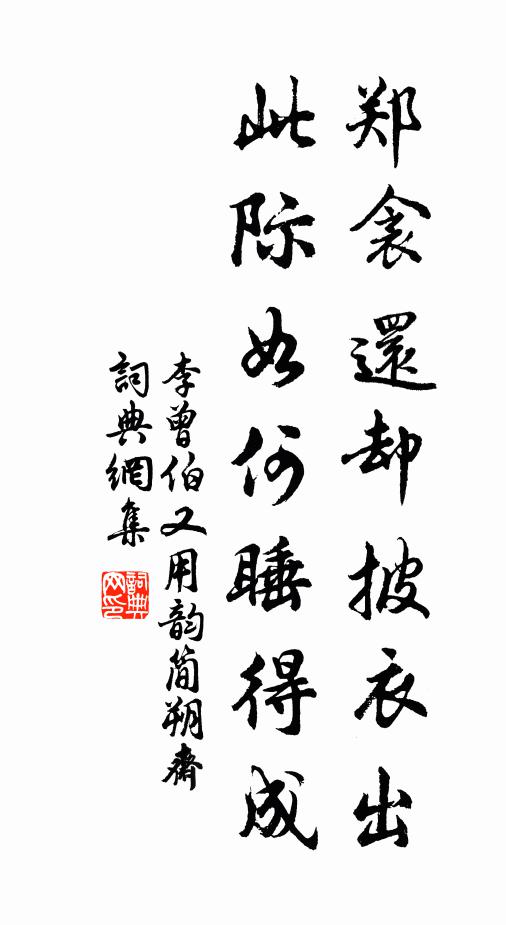 郑衾還却披衣出
此际如何睡得成
李曾伯又用韵简朔齋
詞典網集
詞典网印